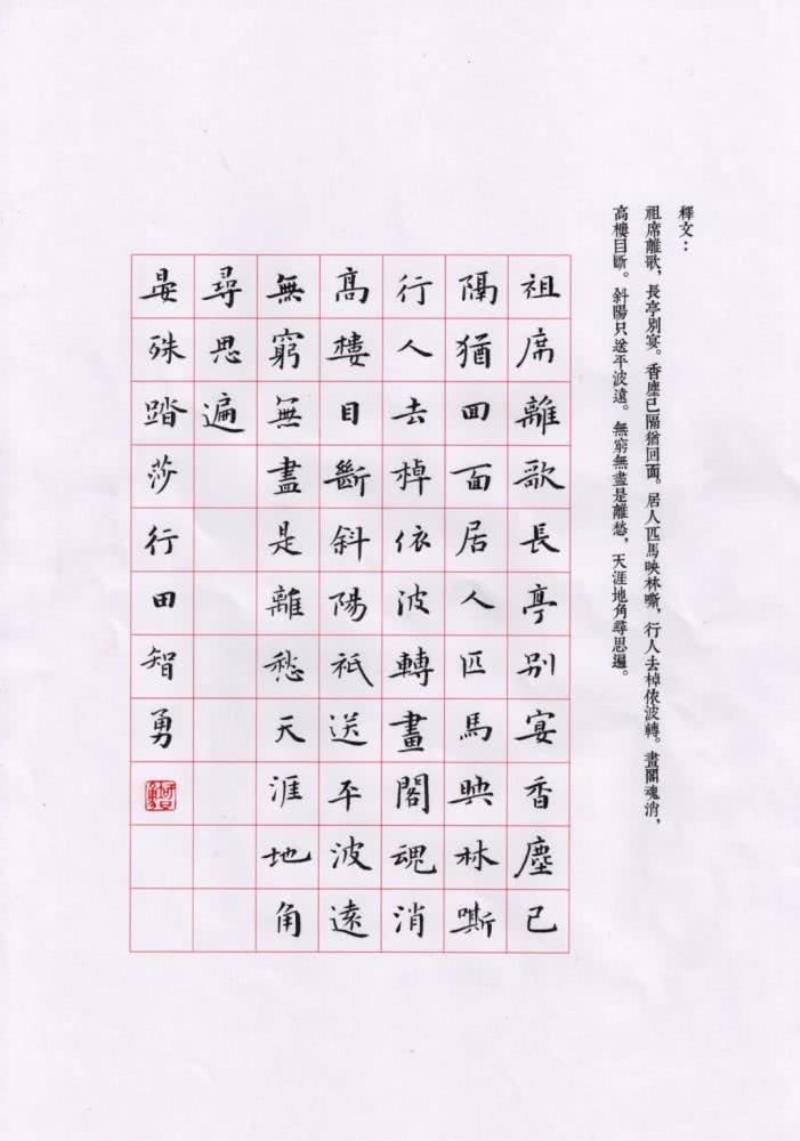 釋文：
祖席離歌，長亭別宴。香塵已隔猶回面。居人匹馬映林嘶，行人去棹依波轉。畫閣魂消，
高樓目斷。斜陽只送平波遠。無窮無盡是離愁，天涯地角尋思遍。
祖席離歌長亭别宴香塵已
隔猶回面居人匹馬映林嘶
行人去棹依波轉畫閣魂消
高樓目斷斜陽祇送平波遠
無窮無盡是離愁天涯地角
尋思遍
晏殊踏莎行田智勇